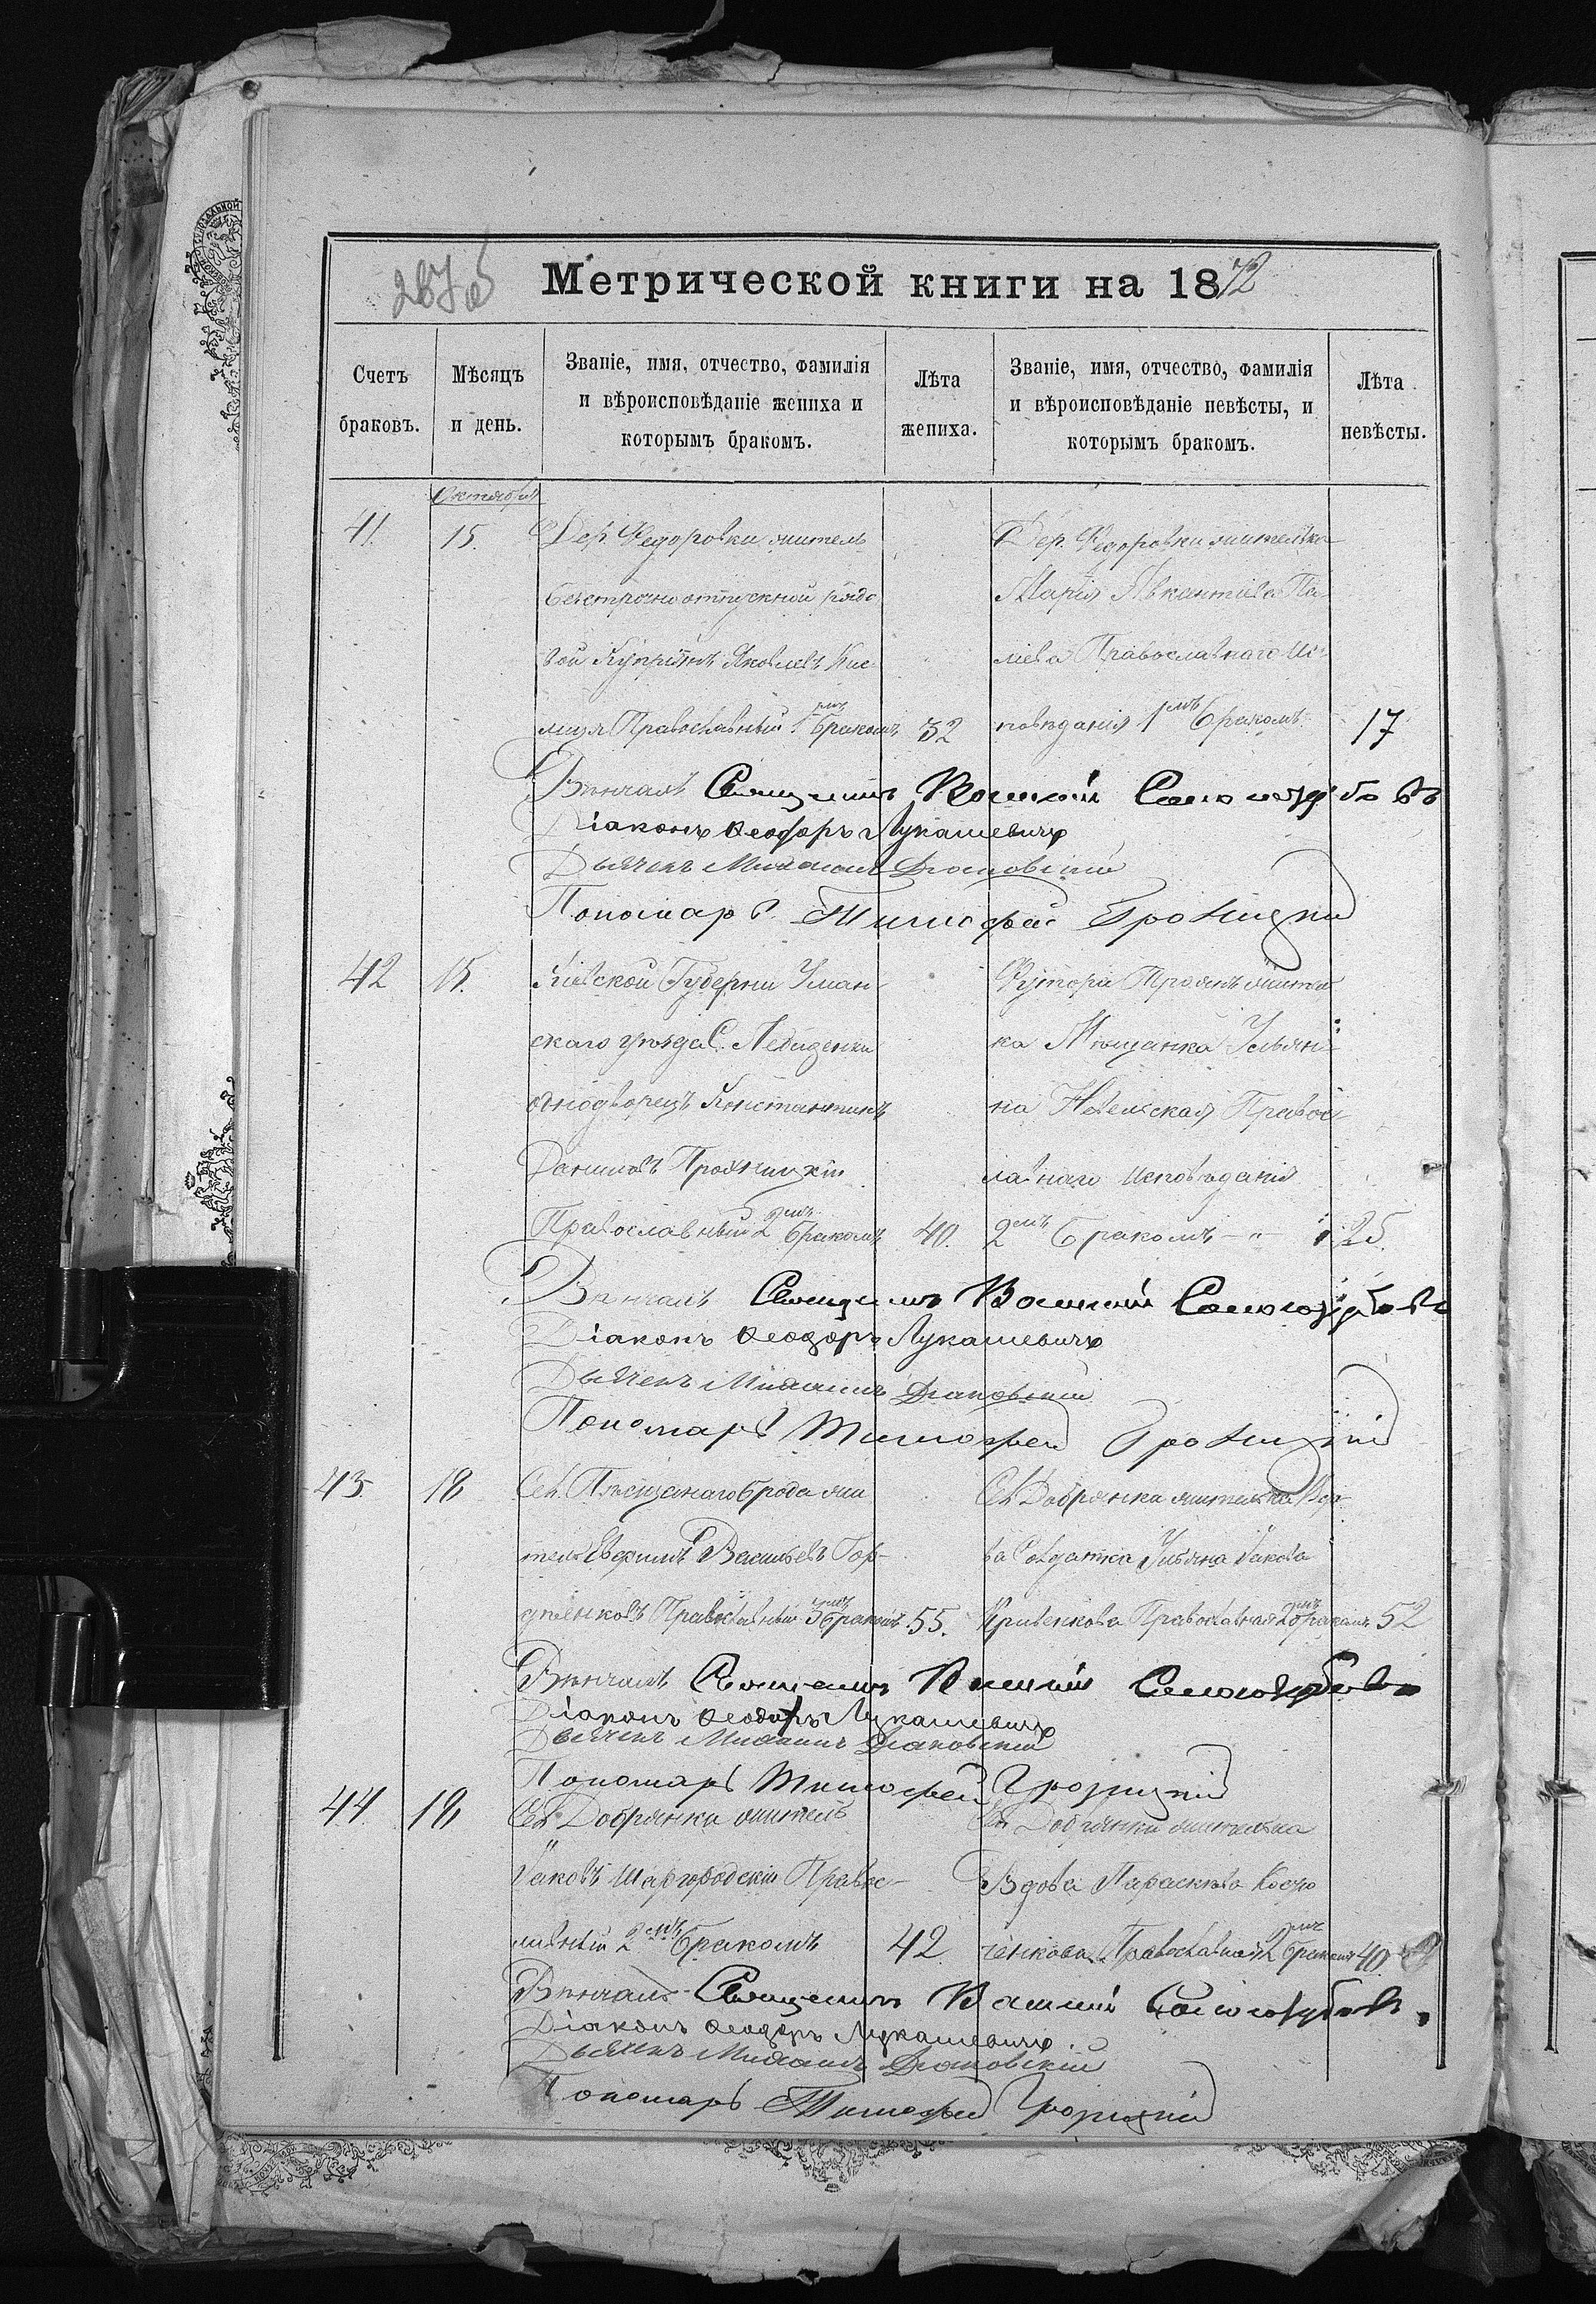 287 об
Метрической книги на 1872
Счетъ браковъ.
Мѣсяцъ и день.
Званіе, имя, отчество, фамилія и вѣроисповѣданіе жениха и которымъ бракомъ.
Лѣта жениха.
Званіе, имя, отчество, фамилія и вѣроисповѣданіе невѣсты, и которымъ бракомъ.
Лѣта невѣсты.
Октября
41. 15.
Дер. Федоровки житель
безсрочно отпускной рядо
вой Купріянъ Яковлевъ
Православный 1мъ бракомъ 32
Дер. Федоровки жителька
Марія
Православнаго ис
повѣданія 1мъ бракомъ 17
Вѣнчалъ Священникъ Василій
Діаконъ Ѳеодоръ Лукашевичъ
Дьячекъ Михаилъ
Пономарь Тимофей
42 15.
Кіевской Губерніи Уман-
скаго уѣзда С.
однодворецъ Константинъ
Даниловъ
Православный 2мъ бракомъ 40.
Футора Троянъ жител
ка Мѣщанка Ульян
на Невельская Правос
лавнаго исповѣданія
2мъ бракомъ -"- 25.
Вѣнчалъ Священникъ Василій
Діаконъ Ѳеодоръ Лукашевичъ
Дьячекъ Михаилъ
Пономарь Тимофей
43. 18
Сел. Пѣщанаго брода жи
тель Евфимъ Васильевъ Гор-
дѣенковъ Православный 3мъ бракомъ 55.
Сел. Добрянки жителька Вдо
ва Солдатка Ульяна Іакова
Кривенкова Православная 2мъ бракомъ 52
Вѣнчалъ Священникъ Василій
Діаконъ Ѳеодоръ Лукашевичъ
Дьячекъ Михаилъ
Пономарь Тимофей
44. 18
Сел. Добрянки житель
Іаковъ Шаргородскій Правос-
лавный 2мъ бракомъ 42
Сел. Добрянки жителька
Вдова Параскева
Православная 2мъ бракомъ 40
Вѣнчалъ Священникъ Василій
Діаконъ Ѳеодоръ Лукашевичъ
Дьячекъ Михаилъ
Пономарь Тимофей